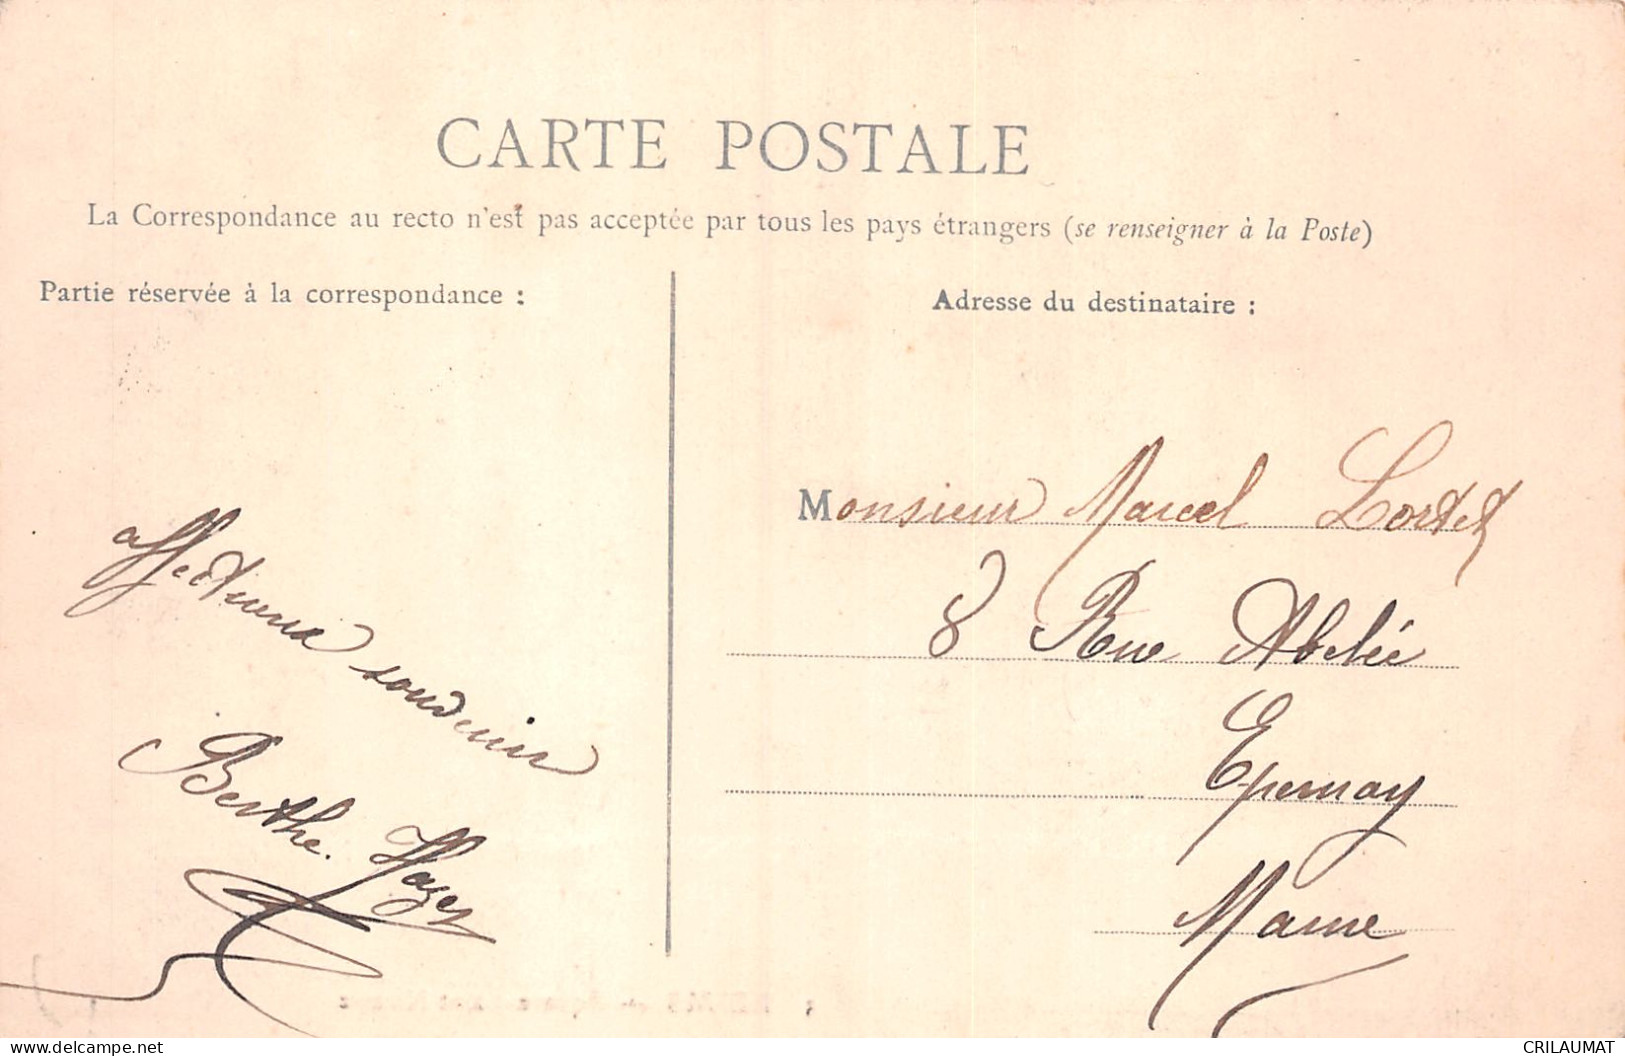 CARTE POSTALE
La Correspondance au recto n'est pas acceptée par tous les pays étrangers (se renseigner à la Poste)
Partie réservée à la correspondance :
affectueux souvenir
Berthe. Hazey
Adresse du destinataire :
Monsieur Marcel Lortet
8 Rue Abelée
Epernay
Marne
CRILAUMAT